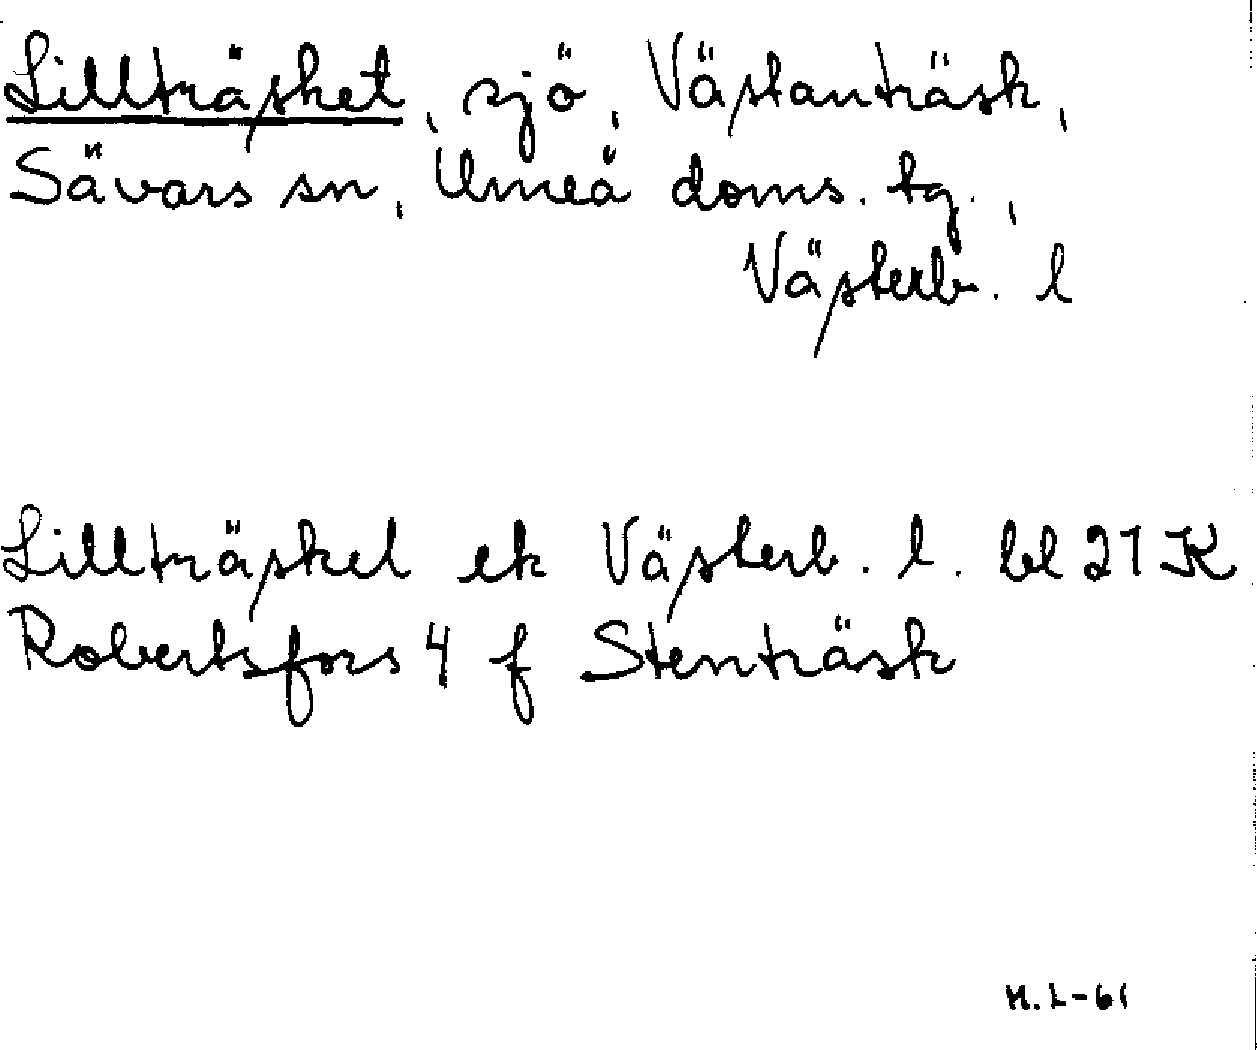 Lillträsket, sjö, Västanträsk,
Sävars sn, Umeå doms. tg.,
Västerb. l
Lillträsket ek Västerb. l. bl 21 K
Robertsfors 4 f Stenträsk
H.L-61